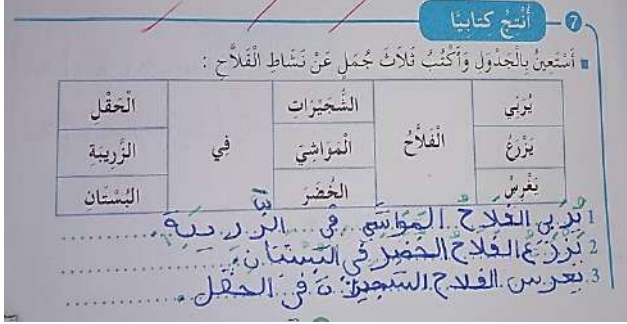 7 أُنْتِجُ كِتَابِيًّا
أَسْتَعِينُ بِالْجَدْوَلِ وَأَكْتُبُ ثَلَاثَ جُمَلٍ عَنْ نَشَاطِ الْفَلَّاحِ :
يُرَبِّي الْفَلَّاحُ الشُّجَيْرَاتِ فِي الْحَقْلِ
يَزْرَعُ الْمَوَاشِيَ الزَّرِيبَةِ
يَغْرِسُ الْخُضَرَ الْبُسْتَانِ
1 يُرَبِّي الفَلَّاحُ المَوَاشِي في الزَّرِيبَةِ.
2 يَزْرَعُ الفَلَّاحُ الخُضَرَ فِي البُسْتَانِ.
3. يغرس الفلاح الشجيرات في الحقل.